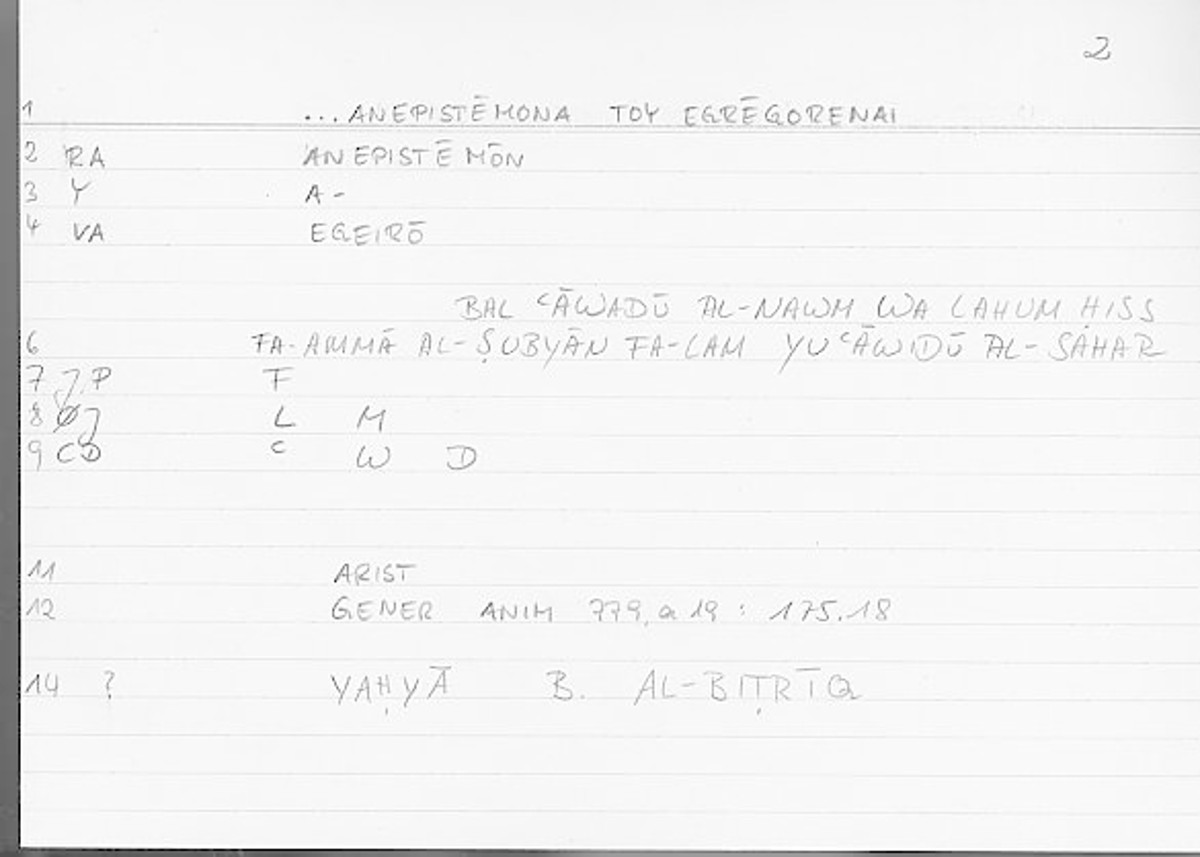 2
1 ...ANEPISTĒMONA TOY EGRĒGORENAI
2 RA ANEPISTĒMŌN
3 Y A-
4 VA EGEIRŌ
BAL ʿĀWADŪ AL-NAWM WA LAHUM ḤISS
6 FA-AMMĀ AL-ṢUBYĀN FA-LAM YUʿĀWIDŪ AL-SAHAR
7 J P F
8 Ø J L M
9 CD ʿ W D
11 ARIST
12 GENER ANIM 779, a 19 : 175.18
14 ? YAḤYĀ B. AL-BIṬRĪQ